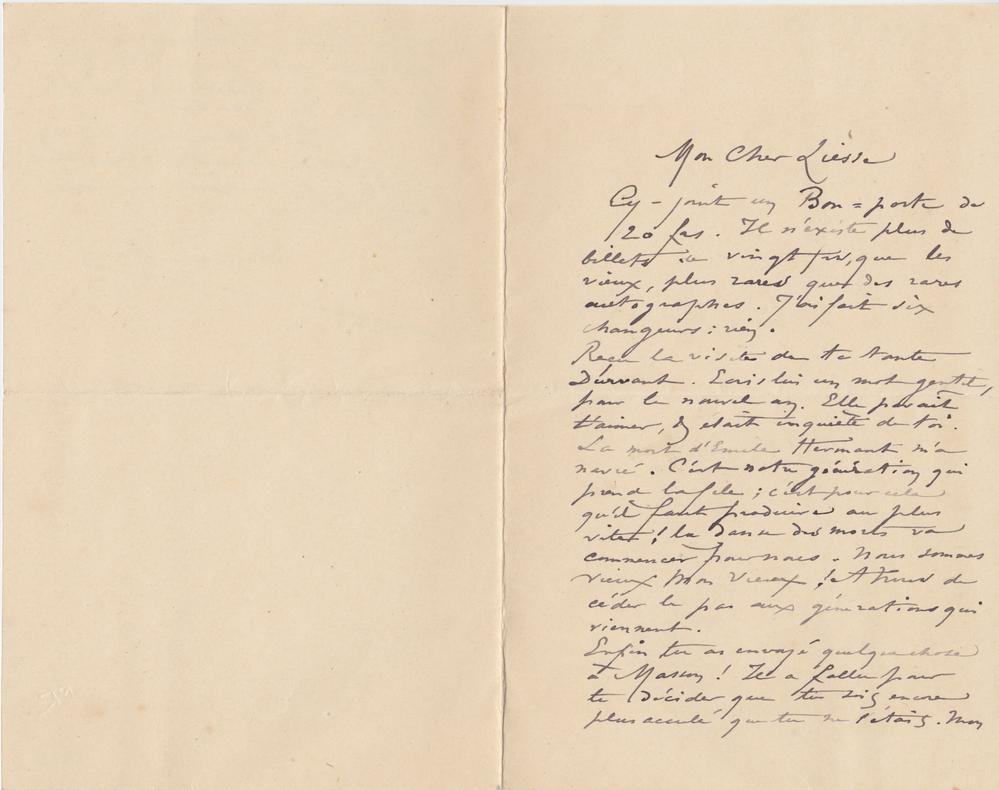 Mon Cher Liesse
Cy-joint un Bon=poste de
20 frs. Il n'existe plus de
billets de vingt frs, que les
vieux, plus rares que des rares
autographes. J'ai fait six
changeurs : rien.
Reçu la visite de ta tante
Durvant. Ecris lui un mot gentil,
pour le nouvel an. Elle parait
t'aimer, & etait inquiète de toi.
La mort d'Emile Hermant m'a
navré. C'est notre génération qui
prend la file ; c'est pour cela
qu'il faut produire au plus
vite ! la danse des morts va
commencer pour nous. Nous sommes
vieux mon vieux ! de
céder le pas aux générations qui
viennent.
Enfin tu as envoyé quelque chose
à Masson ! Il a fallu pour
te décider que tu sois encore
plus acculé que tu ne l'étais. Mon